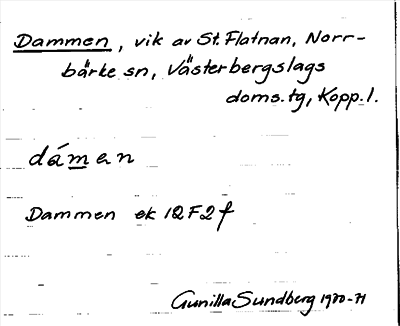 Dammen, vik av St. Flatnan, Norr-
bärke sn, Västerbergslags
doms. tg, Kopp. l.
dámen
Dammen ek 12F2f
Gunilla Sundberg 1970-71